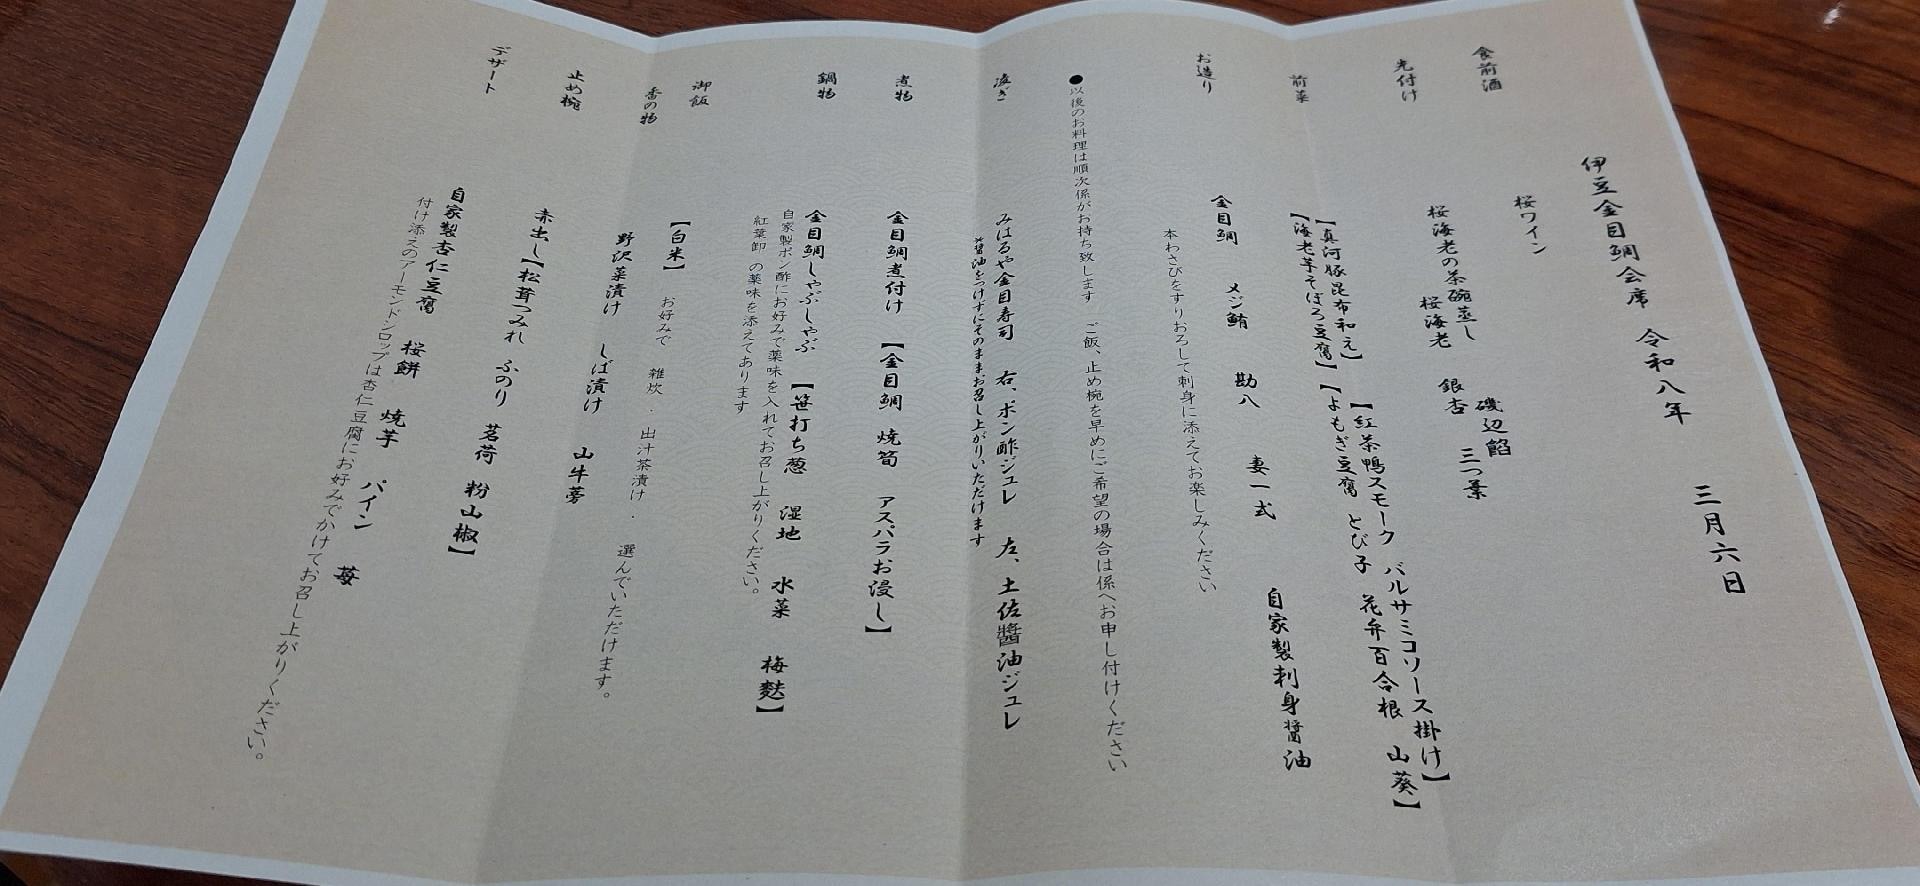 伊豆金目鯛会席 令和八年 三月六日
食前酒 桜ワイン
先付け 桜海老の茶碗蒸し 磯辺餡
桜海老 銀杏 三つ葉
前菜 【真河豚昆布和え】 【紅茶鴨スモーク バルサミコソース掛け】
【海老芋そぼろ豆腐】 【よもぎ豆腐 とび子 花弁百合根 山葵】
お造り 金目鯛 メジ鮪 勘八 妻一式 自家製刺身醤油
本わさびをすりおろして刺身に添えてお楽しみください
●以後のお料理は順次係がお持ち致します ご飯、止め椀を早めにご希望の場合は係へお申し付けください
凌ぎ みはるや金目寿司 右、ポン酢ジュレ 左、土佐醬油ジュレ
※醤油をつけずにそのままお召し上がりいただけます
煮物 金目鯛煮付け 【金目鯛 焼筍 アスパラお浸し】
鍋物 金目鯛しゃぶしゃぶ 【笹打ち葱 湿地 水菜 梅麩】
自家製ポン酢にお好みで薬味を入れてお召し上がりください。
紅葉卸 の薬味を添えてあります
御飯 【白米】 お好みで 雑炊 . 出汁茶漬け . 選んでいただけます。
香の物 野沢菜漬け しば漬け 山牛蒡
止め椀 赤出し【松茸つみれ ふのり 茗荷 粉山椒】
デザート 自家製杏仁豆腐 桜餅 焼芋 パイン 苺
付け添えのアーモンドシロップは杏仁豆腐にお好みでかけてお召し上がりください。